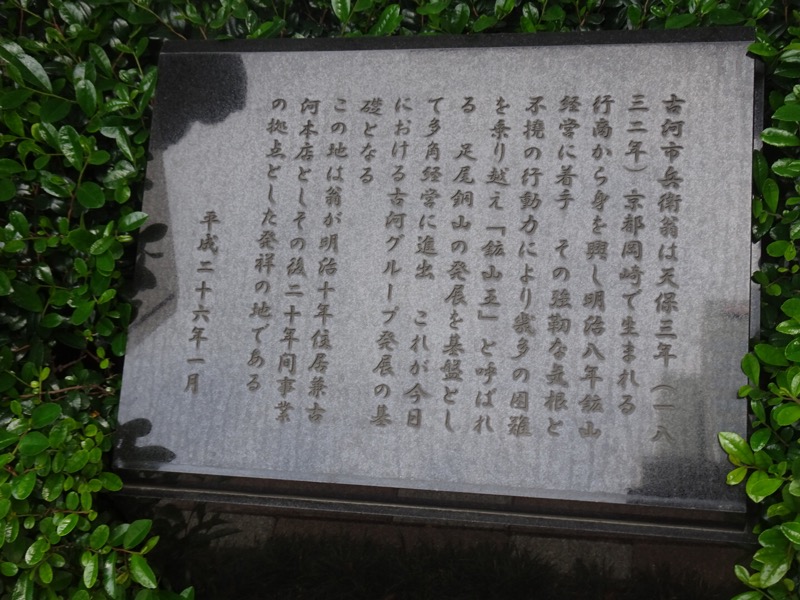 古河市兵衛翁は天保三年（一八
三二年）京都岡崎で生まれる
行商から身を興し明治八年鉱山
経営に着手　その強靭な気根と
不撓の行動力により幾多の困難
を乗り越え「鉱山王」と呼ばれ
る　足尾銅山の発展を基盤とし
て多角経営に進出　これが今日
における古河グループ発展の基
礎となる
この地は翁が明治十年住居兼古
河本店としその後二十年间事業
の拠点とした発祥の地である
平成二十六年一月